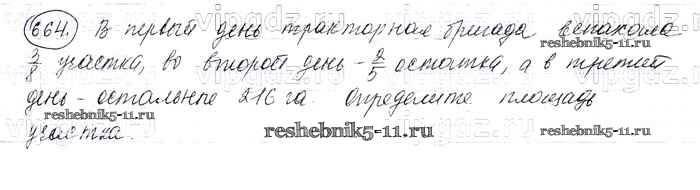 664. В первый день тракторная бригада вспахала
3/8 участка, во второй день - 2/5 остатка, а в третий
день - остальные 216 га. Определите площадь
участка.
reshebnik5-11.ru
reshebnik5-11.ru
reshebnik5-11.ru
reshebnik5-11.ru